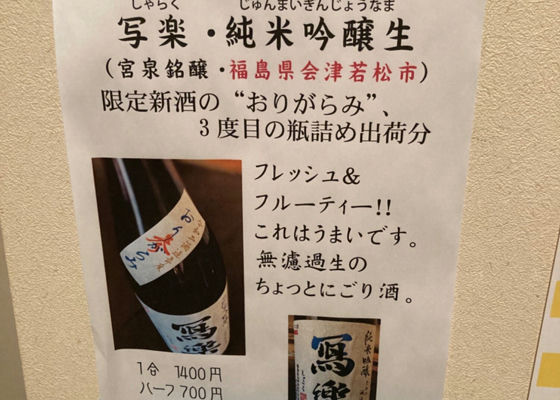 しゃらく　じゅんまいぎんじょうなま
写楽・純米吟醸生
（宮泉銘醸・福島県会津若松市）
限定新酒の“おりがらみ”、
３度目の瓶詰め出荷分
フレッシュ＆
フルーティー!!
これはうまいです。
無濾過生の
ちょっとにごり酒。
おりがらみ
寫樂
１合　1400円
ハーフ 700円
純米吟醸
寫樂